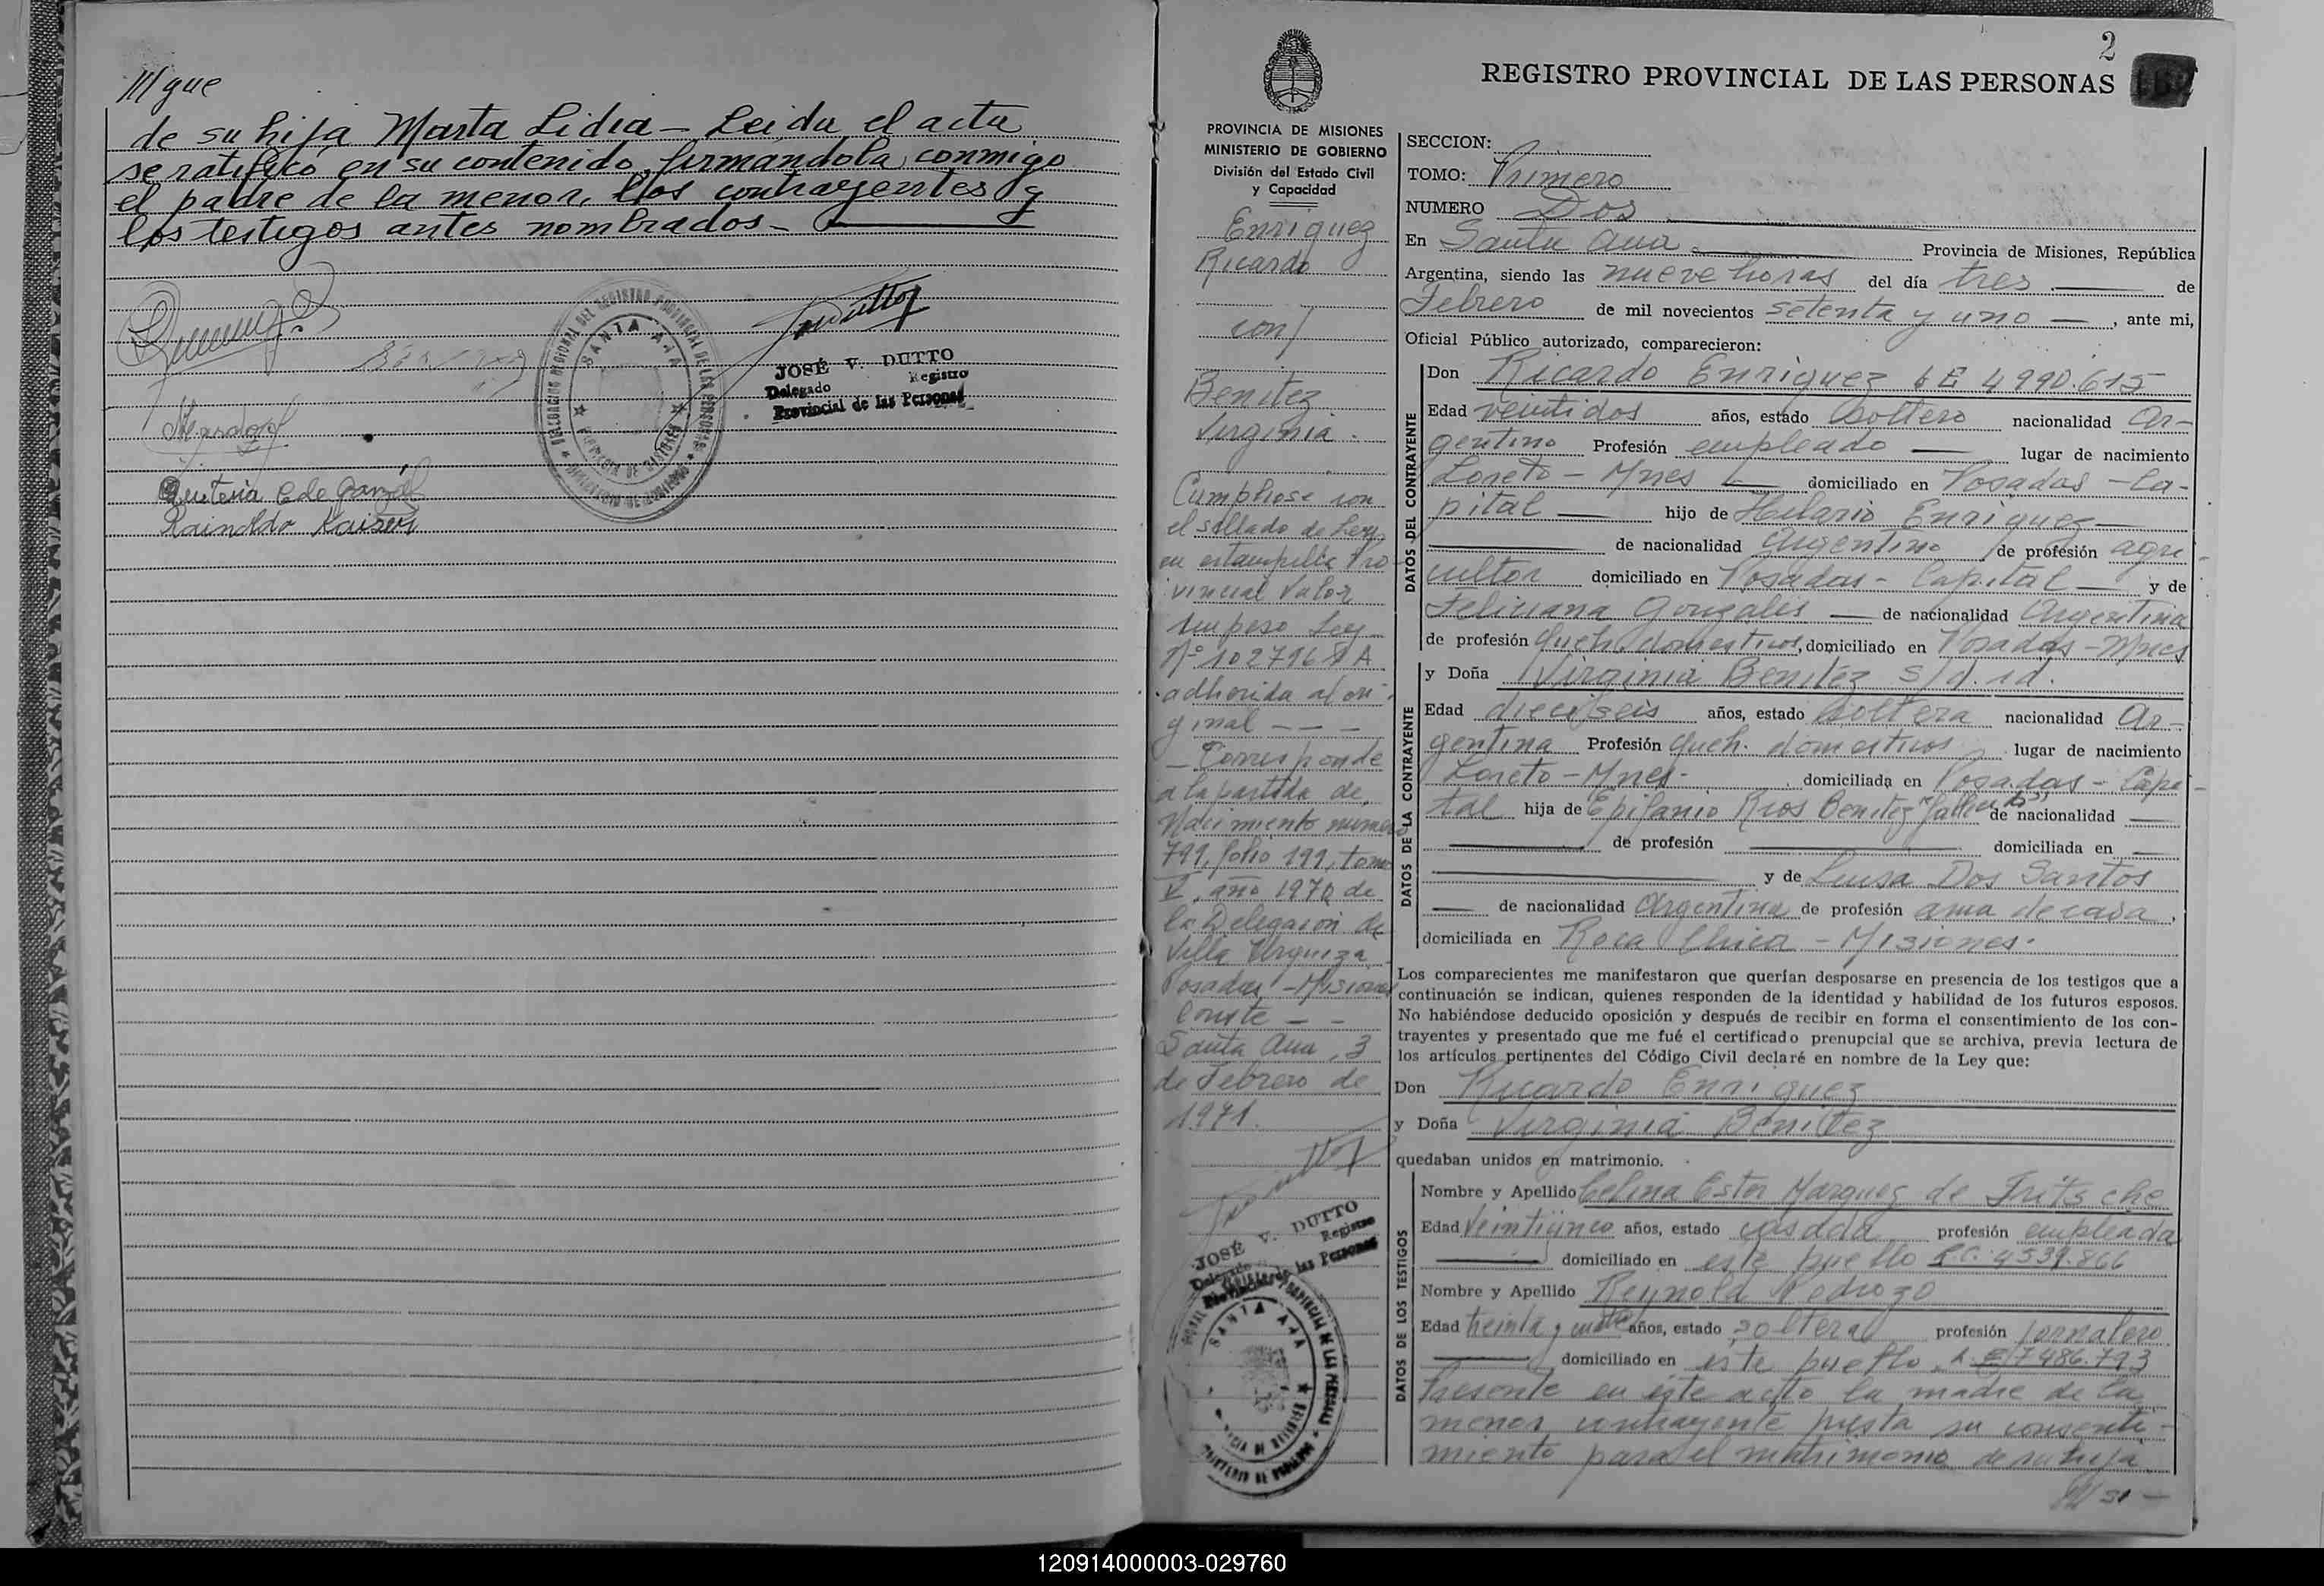 /// que
de su hija Marta Lidia - Leida el acta
se ratificó en su contenido, firmándola, conmigo
el padre de la menor, los contrayentes y
los testigos antes nombrados -
JOSÉ V. DUTTO
Delegado Registro
Provincial de las Personas
SANTA ANA
Quiteria C de
Rainoldo
2
REGISTRO PROVINCIAL DE LAS PERSONAS
PROVINCIA DE MISIONES
MINISTERIO DE GOBIERNO
División del Estado Civil
y Capacidad
Enriquez
Ricardo
con/
Benitez
Virginia.
Cumpliose con
el sellado de Ley
en estampilla Pro
vincial Valor
un peso Ley
adherida al ori-
ginal - - -
- Corresponde
a la partida de
Nacimiento numero
791, folio 199, tomo
V, año 1970 de
la Delegación de
Villa Urquiza
Posadas - Misiones
Conste - -
Santa Ana, 3
de Febrero de
1971.
JOSÉ V. DUTTO
Delegado Registro
Provincial de las Personas
SANTA ANA
SECCION:
TOMO: Primero
NUMERO Dos
En Santa Ana Provincia de Misiones, República
Argentina, siendo las nueve horas del día tres de
Febrero de mil novecientos setenta y uno, ante mi,
Oficial Público autorizado, comparecieron:
DATOS DEL CONTRAYENTE
Don Ricardo Enriquez LE 4990.615
Edad veintidos años, estado soltero nacionalidad Ar-
gentino Profesión empleado lugar de nacimiento
Loreto - Mnes domiciliado en Posadas - Ca-
pital hijo de Hilario Enriquez
de nacionalidad Argentino de profesión agri-
cultor domiciliado en Posadas - Capital y de
Feliciana Gonzales de nacionalidad Argentina
de profesión Queh. domesticos, domiciliado en Posadas - Mnes
DATOS DE LA CONTRAYENTE
y Doña Virginia Benitez s/d.id.
Edad dieciseis años, estado soltera nacionalidad Ar-
gentina Profesión Queh. domesticos lugar de nacimiento
Loreto - Mnes - domiciliada en Posadas - Capi-
tal hija de Epifanio Rios Benitez "fallecido" de nacionalidad
de profesión domiciliada en
y de Luisa Dos Santos
de nacionalidad Argentina de profesión ama de casa,
domiciliada en Roca Chica - Misiones.
Los comparecientes me manifestaron que querían desposarse en presencia de los testigos que a
continuación se indican, quienes responden de la identidad y habilidad de los futuros esposos.
No habiéndose deducido oposición y después de recibir en forma el consentimiento de los con-
trayentes y presentado que me fué el certificado prenupcial que se archiva, previa lectura de
los artículos pertinentes del Código Civil declaré en nombre de la Ley que:
Don Ricardo Enriquez
y Doña Virginia Benitez
quedaban unidos en matrimonio.
DATOS DE LOS TESTIGOS
Nombre y Apellido Celina Ester Marquez de Fritsche
Edad Veinticinco años, estado casada profesión empleada
domiciliado en este pueblo 4539.866
Nombre y Apellido Reynold Pedrozo
Edad treinta y años, estado soltera profesión jornalero
domiciliado en este pueblo 7486.793
Presente en este acto la madre de la
menor contrayente presta su consenti-
miento para el matrimonio de su hija
120914000003-029760